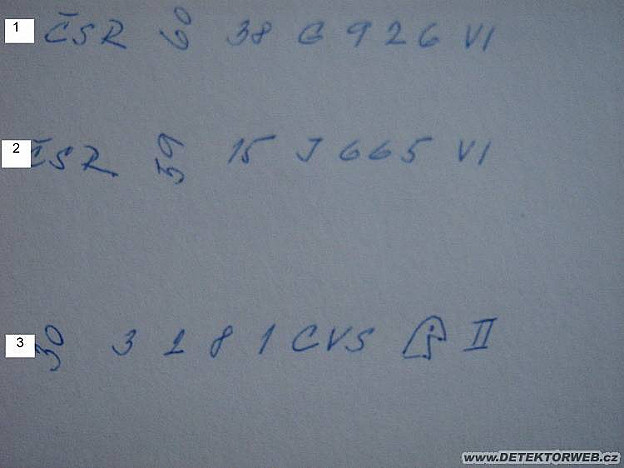 1 ČSR 60 38 G 926 VI
2 ČSR 59 15 J 665 VI
3 30 3281 CVS II
www.DETEKTORWEB.cz